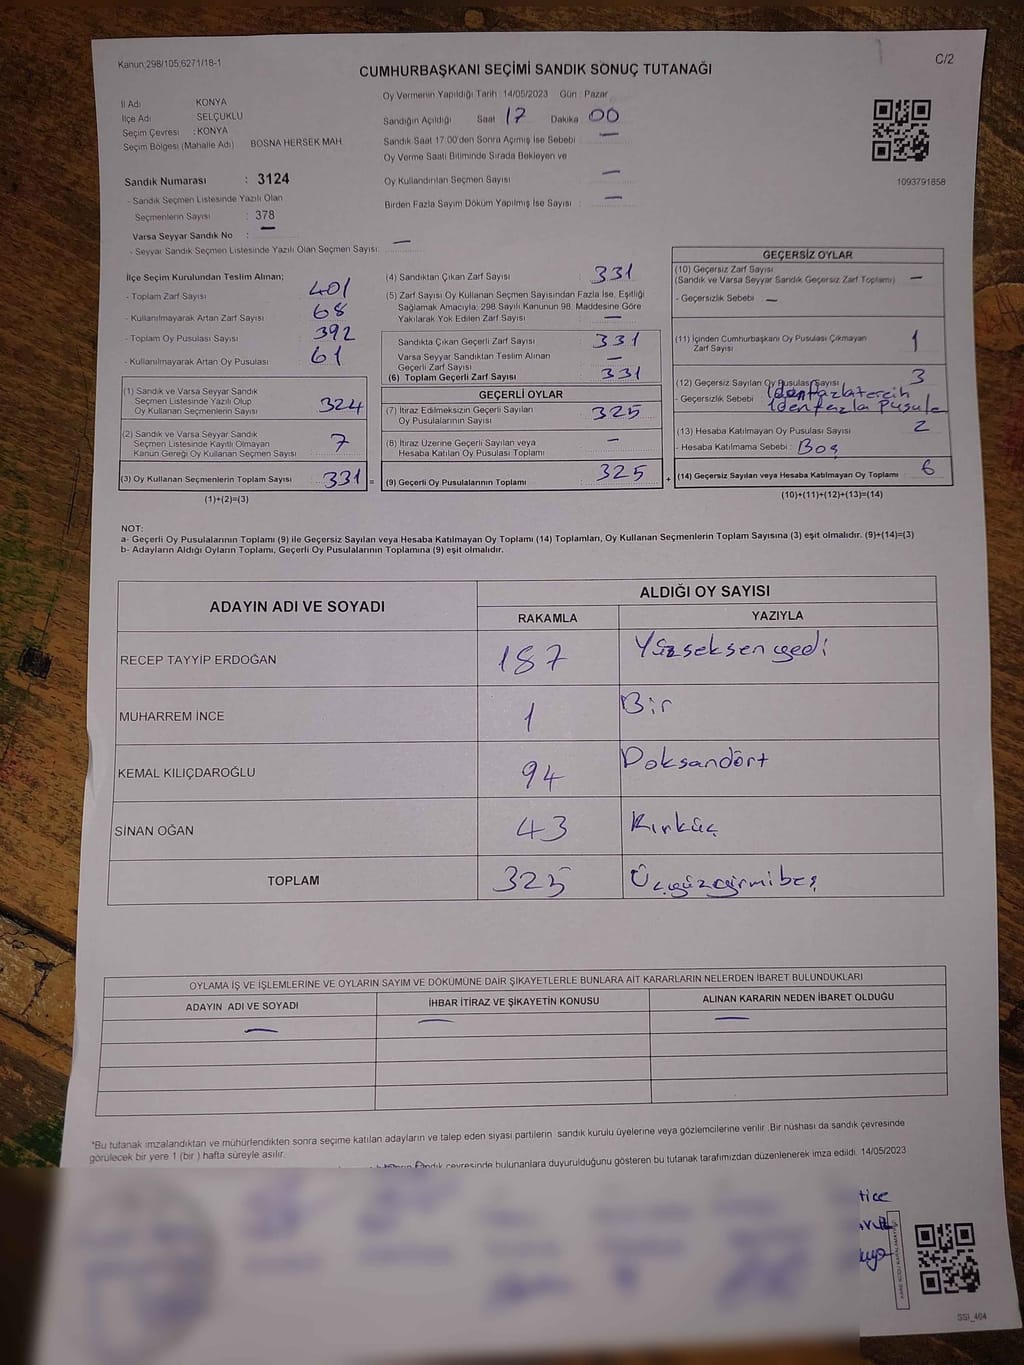 Kanun;298/105;6271/18-1
C/2
CUMHURBAŞKANI SEÇİMİ SANDIK SONUÇ TUTANAĞI
İl Adı KONYA
İlçe Adı SELÇUKLU
Seçim Çevresi : KONYA
Seçim Bölgesi (Mahalle Adı) BOSNA HERSEK MAH.
Oy Vermenin Yapıldığı Tarih : 14/05/2023 Gün : Pazar
Sandığın Açıldığı Saat 17 Dakika 00
Sandık Saat 17:00'den Sonra Açımış İse Sebebi : —
Oy Verme Saati Bitiminde Sırada Bekleyen ve
Oy Kullandırılan Seçmen Sayısı —
Birden Fazla Sayım Döküm Yapılmış İse Sayısı : —
1093791858
Sandık Numarası : 3124
- Sandık Seçmen Listesinde Yazılı Olan
Seçmenlerin Sayısı : 378
Varsa Seyyar Sandık No : —
- Seyyar Sandık Seçmen Listesinde Yazılı Olan Seçmen Sayısı: —
İlçe Seçim Kurulundan Teslim Alınan;
- Toplam Zarf Sayısı 401
- Kullanılmayarak Artan Zarf Sayısı : 68
- Toplam Oy Pusulası Sayısı : 392
- Kullanılmayarak Artan Oy Pusulası : 61
(1) Sandık ve Varsa Seyyar Sandık
Seçmen Listesinde Yazılı Olup
Oy Kullanan Seçmenlerin Sayısı 324
(2) Sandık ve Varsa Seyyar Sandık
Seçmen Listesinde Kayıtlı Olmayan
Kanun Gereği Oy Kullanan Seçmen Sayısı : 7
(3) Oy Kullanan Seçmenlerin Toplam Sayısı : 331 =
(1)+(2)=(3)
(4) Sandıktan Çıkan Zarf Sayısı 331
(5) Zarf Sayısı Oy Kullanan Seçmen Sayısından Fazla İse, Eşitliği
Sağlamak Amacıyla; 298 Sayılı Kanunun 98. Maddesine Göre
Yakılarak Yok Edilen Zarf Sayısı : —
Sandıkta Çıkan Geçerli Zarf Sayısı : 331
Varsa Seyyar Sandıktan Teslim Alınan
Geçerli Zarf Sayısı : —
(6) Toplam Geçerli Zarf Sayısı : 331
GEÇERLİ OYLAR
(7) İtiraz Edilmeksizin Geçerli Sayılan
Oy Pusulasının Sayısı : 325
(8) İtiraz Üzerine Geçerli Sayılan veya
Hesaba Katılan Oy Pusulası Toplamı : —
(9) Geçerli Oy Pusulalarının Toplamı : 325 +
GEÇERSİZ OYLAR
(10) Geçersiz Zarf Sayısı
(Sandık ve Varsa Seyyar Sandık Geçersiz Zarf Toplamı) : —
- Geçersizlik Sebebi : —
(11) İçinden Cumhurbaşkanı Oy Pusulası Çıkmayan
Zarf Sayısı 1
(12) Geçersiz Sayılan Oy Pusulası Sayısı : 3
- Geçersizlik Sebebi 1den fazla tercih
1den fazla Pusula
(13) Hesaba Katılmayan Oy Pusulası Sayısı 2
- Hesaba Katılmama Sebebi : Boş
(14) Geçersiz Sayılan veya Hesaba Katılmayan Oy Toplamı 6
(10)+(11)+(12)+(13)=(14)
NOT:
a- Geçerli Oy Pusulalarının Toplamı (9) ile Geçersiz Sayılan veya Hesaba Katılmayan Oy Toplamı (14) Toplamları, Oy Kullanan Seçmenlerin Toplam Sayısına (3) eşit olmalıdır. (9)+(14)=(3)
b- Adayların Aldığı Oyların Toplamı, Geçerli Oy Pusulalarının Toplamına (9) eşit olmalıdır.
ADAYIN ADI VE SOYADI ALDIĞI OY SAYISI
RAKAMLA YAZIYLA
RECEP TAYYİP ERDOĞAN 187 Yüzseksenyedi
MUHARREM İNCE 1 Bir
KEMAL KILIÇDAROĞLU 94 Doksandört
SİNAN OĞAN 43 Kırküç
TOPLAM 325 Üçyüzyirmibeş
OYLAMA İŞ VE İŞLEMLERİNE VE OYLARIN SAYIM VE DÖKÜMÜNE DAİR ŞİKAYETLERLE BUNLARA AİT KARARLARIN NELERDEN İBARET BULUNDUKLARI
ADAYIN ADI VE SOYADI İHBAR İTİRAZ VE ŞİKAYETİN KONUSU ALINAN KARARIN NEDEN İBARET OLDUĞU
— — —
*Bu tutanak imzalandıktan ve mühürlendikten sonra seçime katılan adayların ve talep eden siyasi partilerin sandık kurulu üyelerine veya gözlemcilerine verilir .Bir nüshası da sandık çevresinde
görülecek bir yere 1 (bir ) hafta süreyle asılır.
sandık çevresinde bulunanlara duyurulduğunu gösteren bu tutanak tarafımızdan düzenlenerek imza edildi. 14/05/2023
tice
SSİ_404